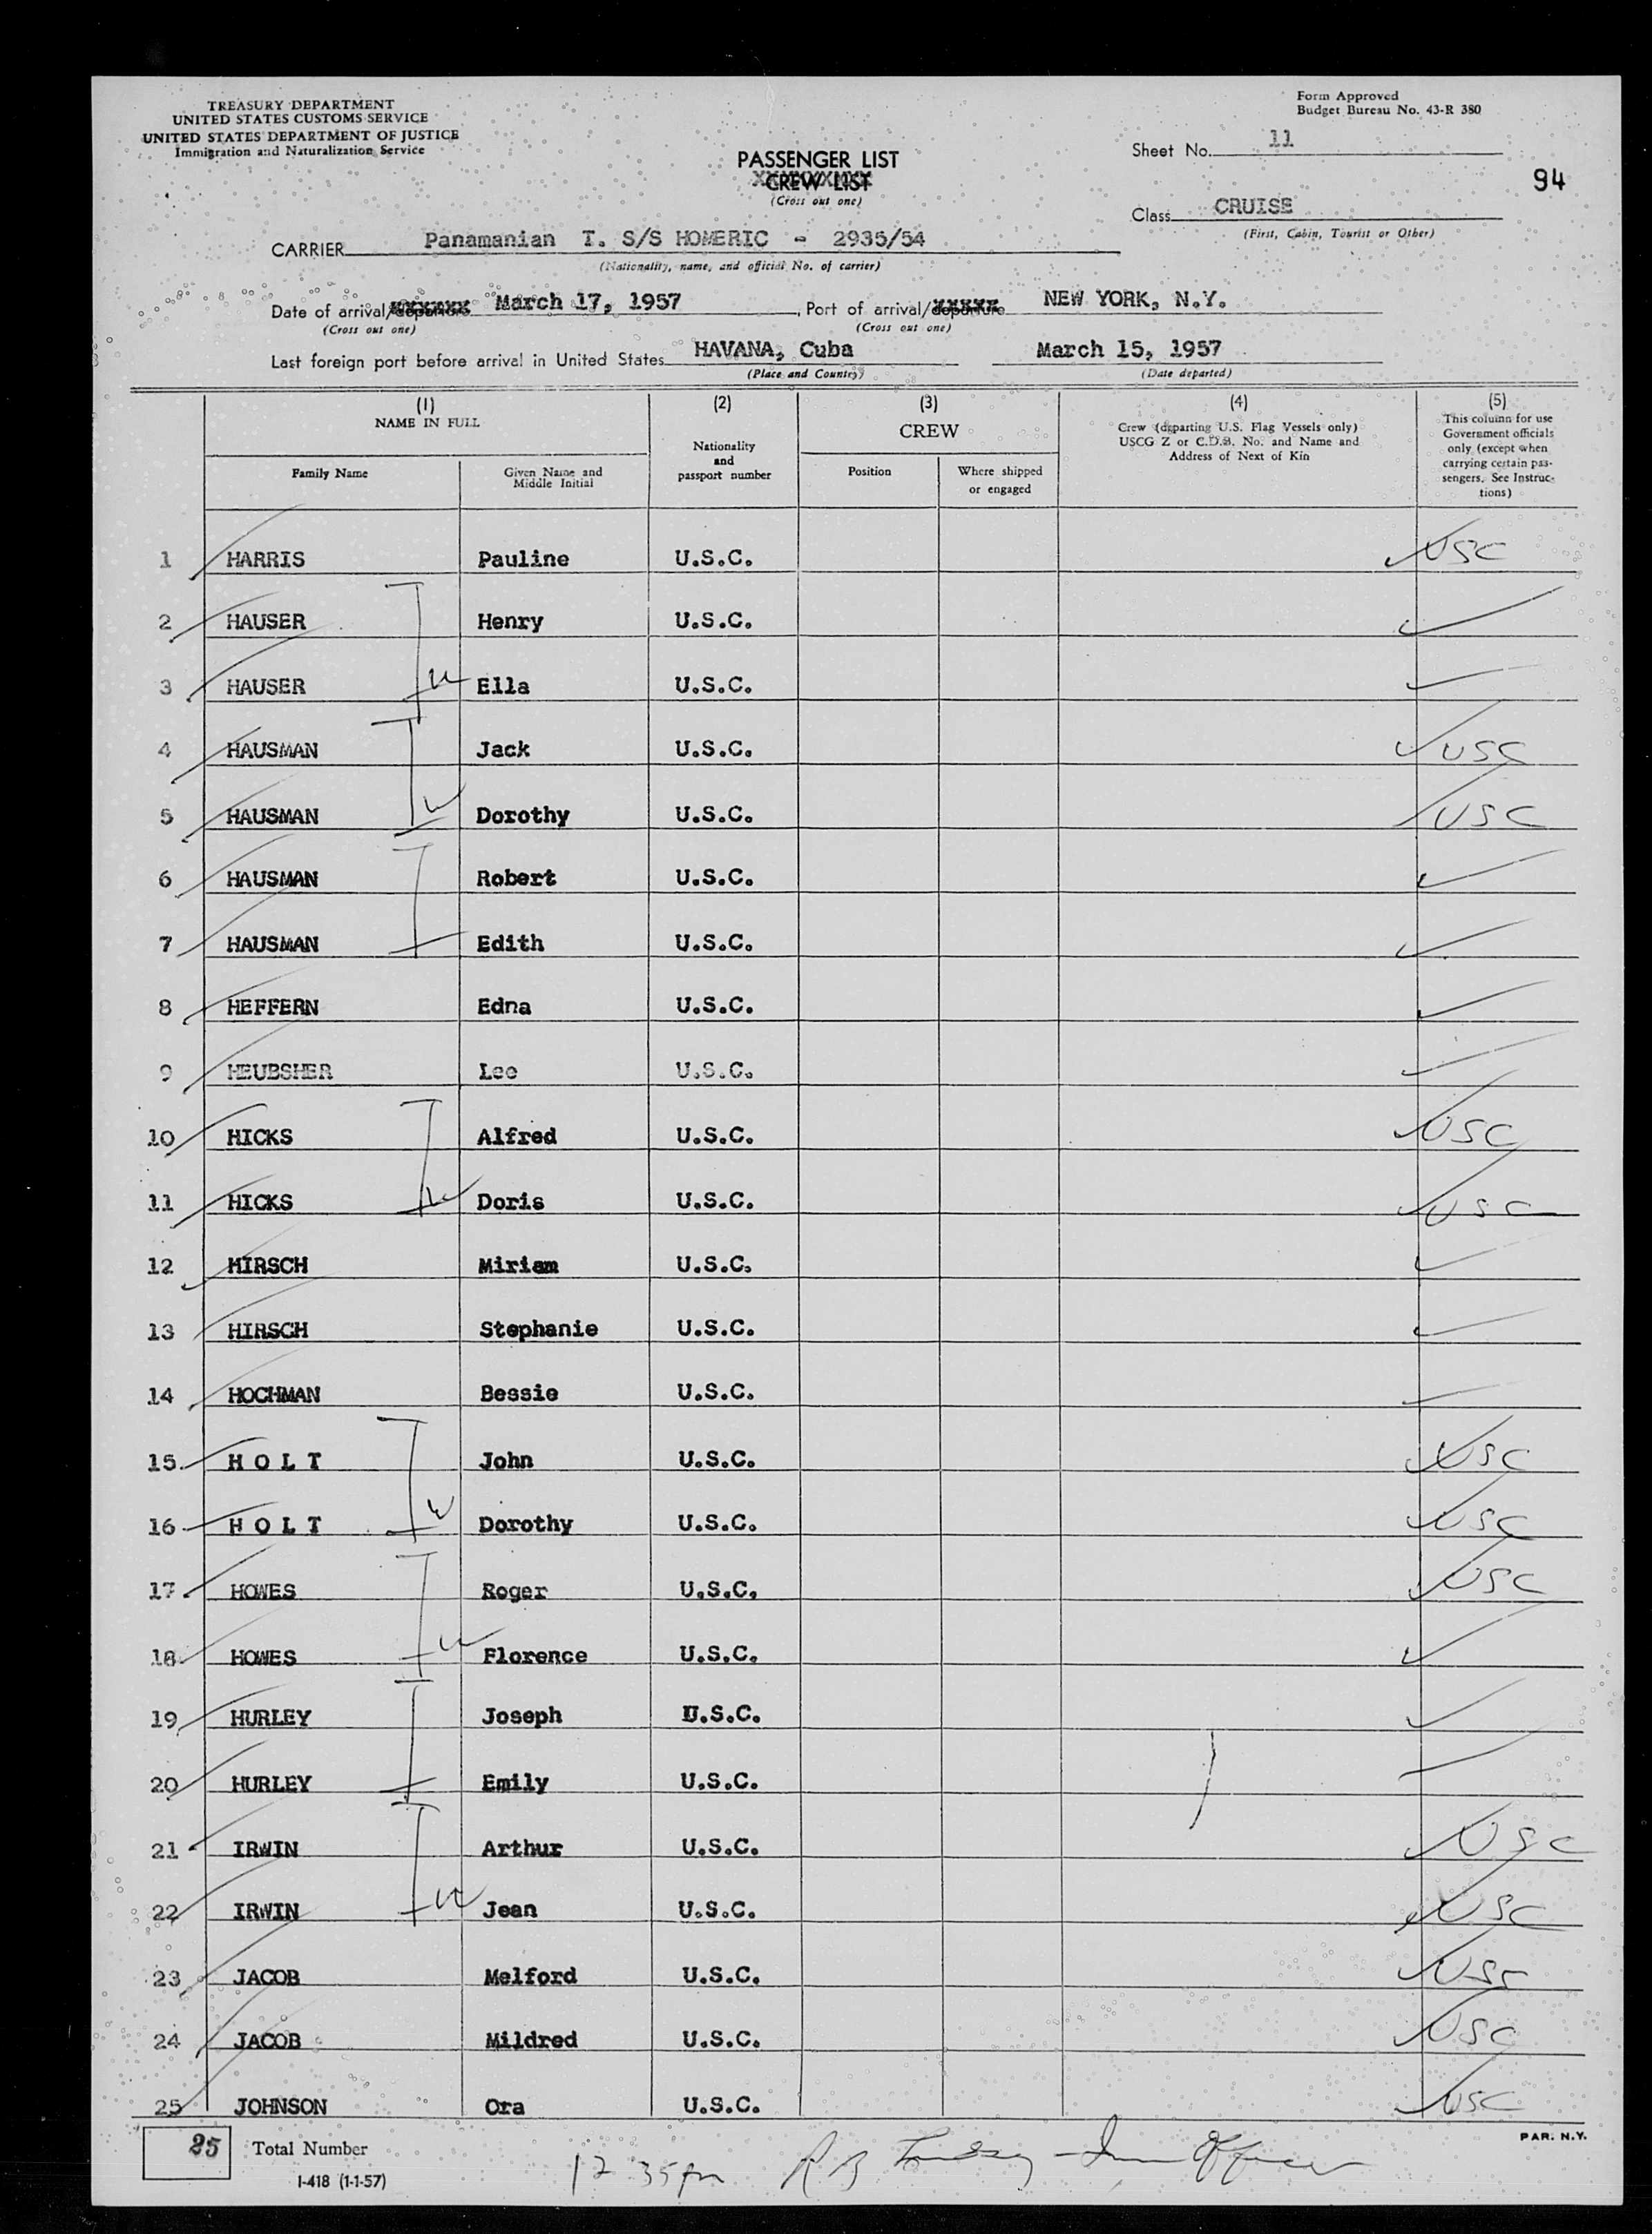 TREASURY DEPARTMENT
UNITED STATES CUSTOMS SERVICE
UNITED STATES DEPARTMENT OF JUSTICE
Immigration and Naturalization Service
Form Approved
Budget Bureau No. 43-R 380
Sheet No. 11
94
PASSENGER LIST
CREW LIST
(Cross out one)
Class CRUISE
(First, Cabin, Tourist or Other)
CARRIER Panamanian T. S/S HOMERIC - 2935/54
(Nationality, name, and official No. of carrier)
Date of arrival/departure March 17, 1957, Port of arrival/departure NEW YORK, N.Y.
(Cross out one) (Cross out one)
Last foreign port before arrival in United States HAVANA, Cuba March 15, 1957
(Place and Country) (Date departed)
(1) (2) (3) (4) (5)
NAME IN FULL
Family Name
Given Name and
Middle Initial
Nationality
and
passport number
CREW
Position
Where shipped
or engaged
Crew (departing U.S. Flag Vessels only)
USCG Z or C.D.B. No. and Name and
Address of Next of Kin
This column for use
Government officials
only (except when
carrying certain pas-
sengers. See Instruc-
tions)
1 HARRIS Pauline U.S.C. USC
2 HAUSER Henry U.S.C.
3 HAUSER W Ella U.S.C.
4 HAUSMAN Jack U.S.C. USC
5 HAUSMAN W Dorothy U.S.C. USC
6 HAUSMAN Robert U.S.C.
7 HAUSMAN Edith U.S.C.
8 HEFFERN Edna U.S.C.
9 HEUBSHER Lee U.S.C.
10 HICKS Alfred U.S.C. USC
11 HICKS W Doris U.S.C. USC
12 HIRSCH Miriam U.S.C.
13 HIRSCH Stephanie U.S.C.
14 HOCHMAN Bessie U.S.C.
15 HOLT John U.S.C. USC
16 HOLT W Dorothy U.S.C. USC
17 HOWES Roger U.S.C. USC
18 HOWES W Florence U.S.C.
19 HURLEY Joseph U.S.C.
20 HURLEY Emily U.S.C.
21 IRWIN Arthur U.S.C. USC
22 IRWIN W Jean U.S.C. USC
23 JACOB Melford U.S.C. USC
24 JACOB Mildred U.S.C. USC
25 JOHNSON Ora U.S.C. USC
25 Total Number
I-418 (1-1-57)
PAR. N.Y.
12 35 pm R B Imm Officer